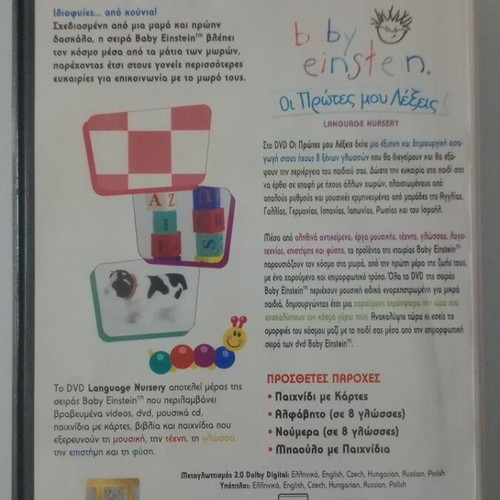 Ιδιοφυίες... από κούνια!
Σχεδιασμένη από μια μαμά και πρώην
δασκάλα, η σειρά Baby Einstein™ βλέπει
τον κόσμο μέσα από τα μάτια των μωρών,
παρέχοντας έτσι στους γονείς περισσότερες
ευκαιρίες για επικοινωνία με το μωρό τους.
baby
einstein.
Οι Πρώτες μου Λέξεις
LANGUAGE NURSERY
Στο DVD Οι Πρώτες μου Λέξεις δείτε μια έξυπνη και δημιουργική εισα-
γωγή στους ήχους 8 ξένων γλωσσών που θα διεγείρουν και θα εξά-
ψουν την περιέργεια του παιδιού σας. Δώστε την ευκαιρία στο παιδί σας
να έρθει σε επαφή με ήχους άλλων χωρών, πλαισιωμένους από
απαλούς ρυθμούς και μουσικές ερμηνευμένες από μαμάδες της Αγγλίας,
Γαλλίας, Γερμανίας, Ισπανίας, Ιαπωνίας, Ρωσίας και του Ισραήλ.
Μέσα από αληθινά αντικείμενα, έργα μουσικής, τέχνης, γλώσσας, λογο-
τεχνίας, επιστήμης και φύσης, τα προϊόντα της εταιρίας Baby Einstein™
παρουσιάζουν τον κόσμο στα μωρά, από την πρώτη μέρα της ζωής τους,
με ένα χαρούμενο και επιμορφωτικό τρόπο. Όλα τα DVD της σειράς
Baby Einstein™ περιέχουν μουσική ειδικά ενορχηστρωμένη για μικρά
παιδιά, δημιουργώντας έτσι μια χαρούμενη ατμόσφαιρα την ώρα που
ανακαλύπτουν τον κόσμο γύρω τους. Ανακαλύψτε τώρα κι εσείς τις
ομορφιές του κόσμου μαζί με το παιδί σας μέσα από την επιμορφωτική
σειρά των dvd Baby Einstein™.
A Z
S
Το DVD Language Nursery αποτελεί μέρος της
σειράς Baby Einstein™ που περιλαμβάνει
βραβευμένα videos, dvd, μουσικά cd,
παιχνίδια με κάρτες, βιβλία και παιχνίδια που
εξερευνούν τη μουσική, την τέχνη, τη γλώσσα,
την επιστήμη και τη φύση.
ΠΡΟΣΘΕΤΕΣ ΠΑΡΟΧΕΣ
• Παιχνίδι με Κάρτες
• Αλφάβητο (σε 8 γλώσσες)
• Νούμερα (σε 8 γλώσσες)
• Μπαούλο με Παιχνίδια
Μεταγλωττισμός 2.0 Dolby Digital: Ελληνικά, English, Czech, Hungarian, Russian, Polish
Υπότιτλοι: Ελληνικά, English, Czech, Hungarian, Russian, Polish